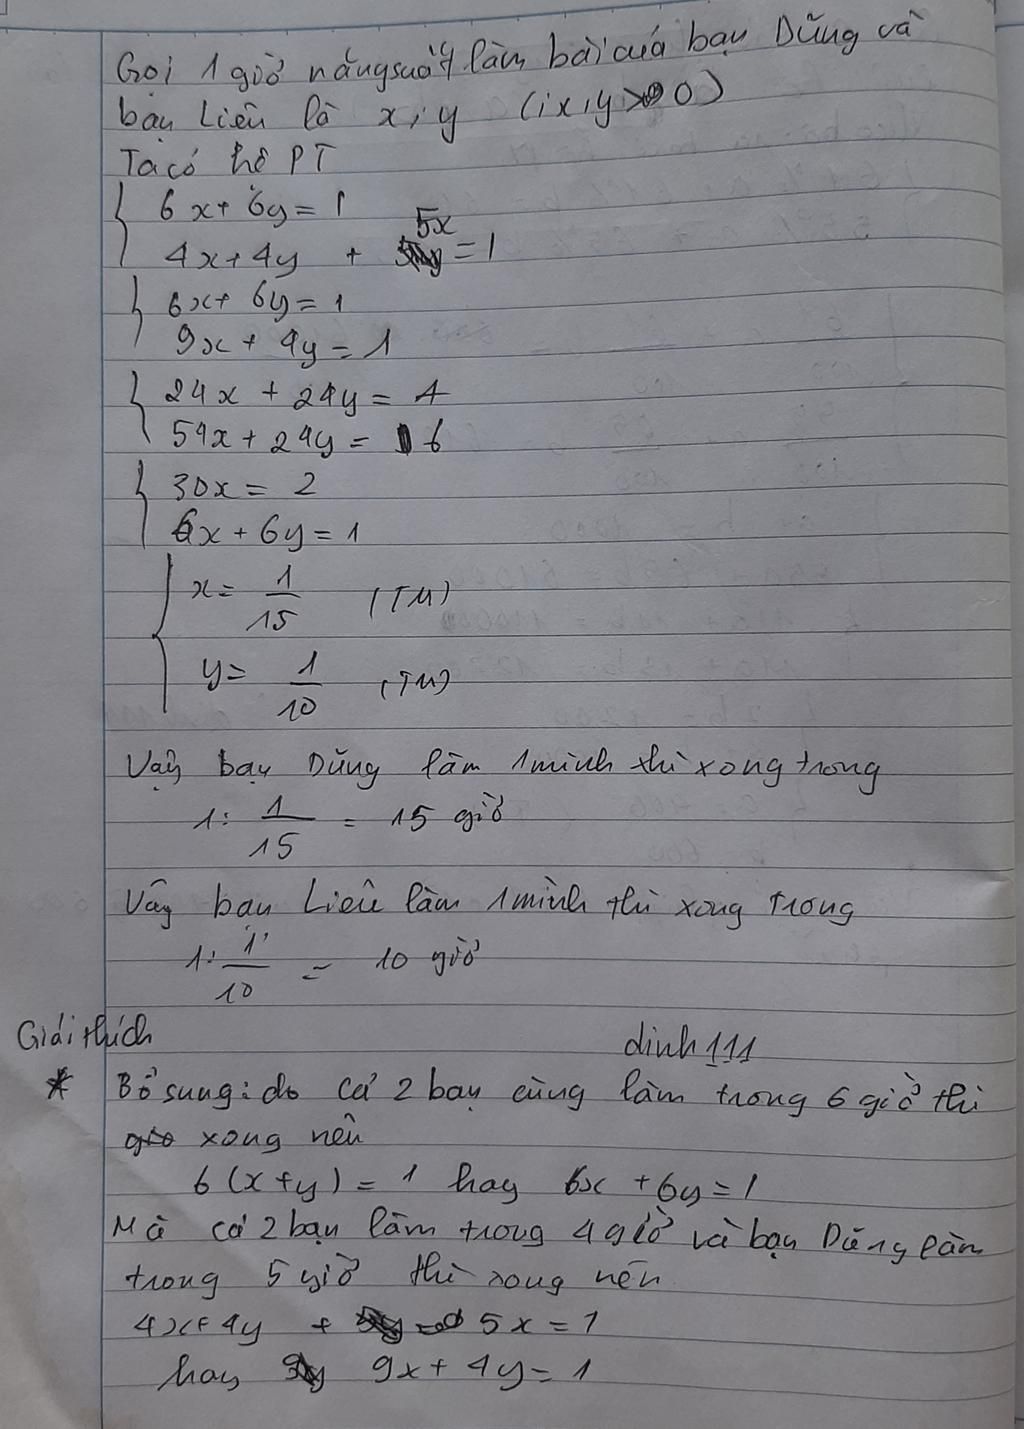 Gọi 1 giờ năng suất làm bài của bạn Dũng và
bạn Liên là x, y (x, y > 0)
Ta có hệ PT
6x + 6y = 1
4x + 4y + 5x = 1
6x + 6y = 1
9x + 4y = 1
24x + 24y = 4
54x + 24y = 6
30x = 2
6x + 6y = 1
x = 1/15 (TM)
y = 1/10 (TM)
Vậy bạn Dũng làm 1 mình thì xong trong
1 : 1/15 = 15 giờ
Vậy bạn Liên làm 1 mình thì xong trong
1 : 1/10 = 10 giờ
Giải thích
dinh111
* Bổ sung: do cả 2 bạn cùng làm trong 6 giờ thì
xong nên
6(x+y) = 1 hay 6x + 6y = 1
Mà cả 2 bạn làm trong 4 giờ và bạn Dũng làm
trong 5 giờ thì xong nên
4x + 4y + 5x = 1
hay 9x + 4y = 1